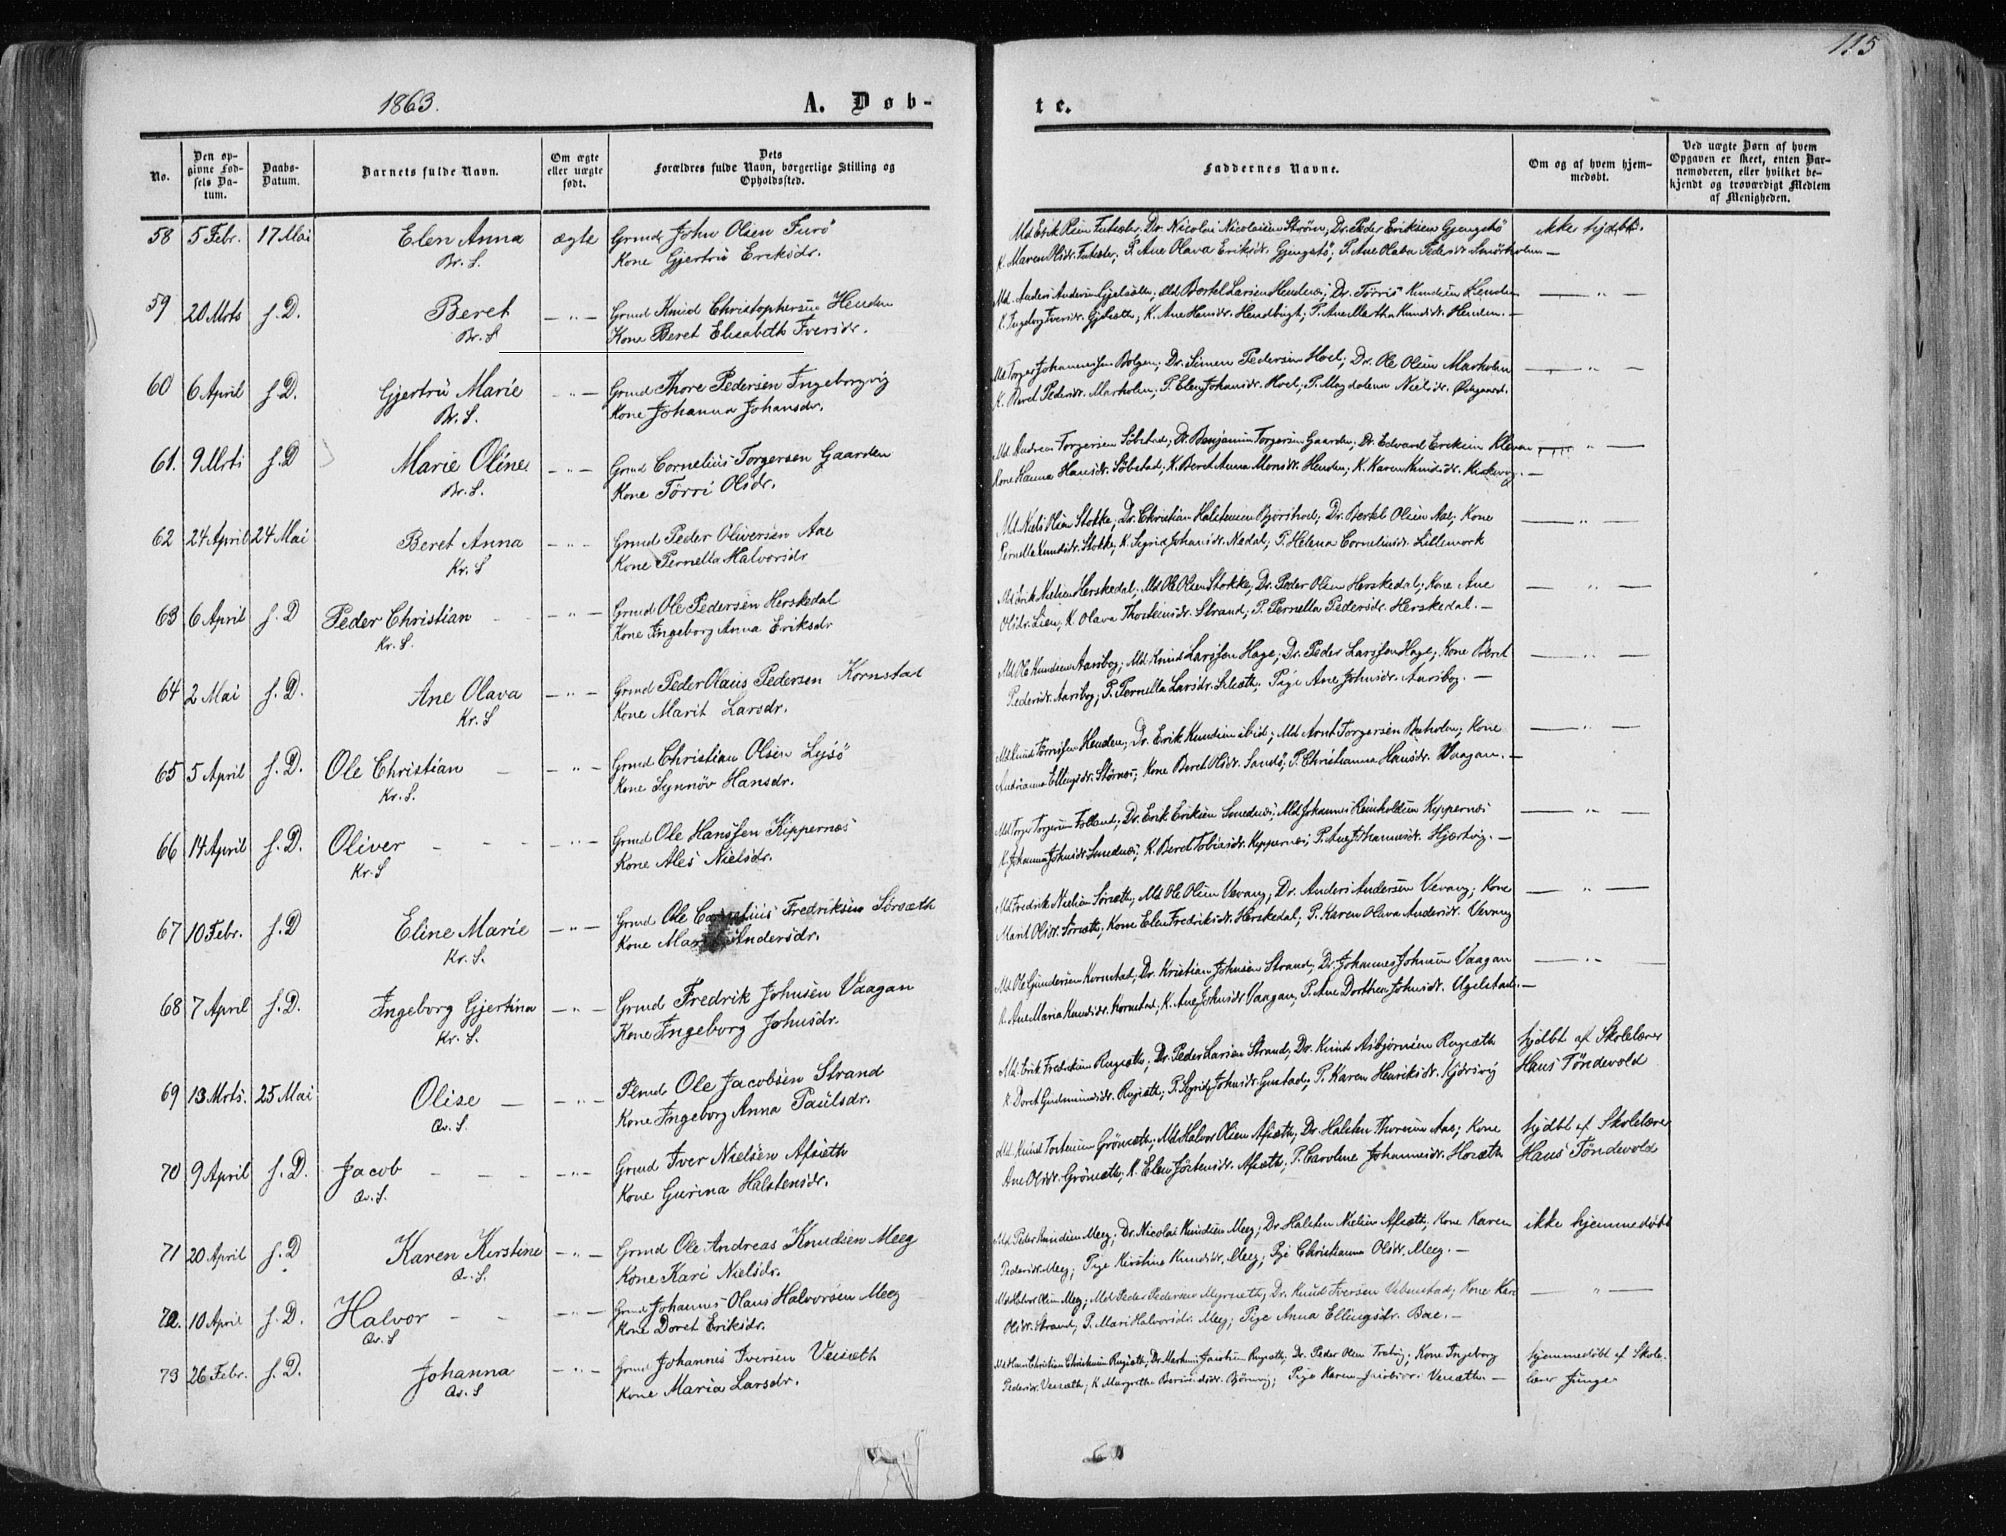 115
1863.
A. Døb-
te.
No.
Den op-
givne Fød-
sels Da-
tum.
Daabs-
Datum.
Barnets fulde Navn.
Om ægte
eller uægte
født.
Dets
Forældres fulde Navn, borgerlige Stilling og
Opholdssted.
Faddernes Navne.
Om og af hvem hjem-
medøbt.
Ved uægte Børn af hvem
Opgaven er skeet, enten Bar-
nemoderen, eller hvilket be-
kjendt og troværdigt Medlem
af Menigheden.
58 5 Febr. 17 Mai Elen Anna ægte Grmd John Olsen Furø
Br. S. Kone Gjertru Eriksdr.
Dr. Nicolai Nicolaisen Strøm, Dr. Peder Eriksen Gjengstø ikke hjdbt.
K. Maren Olsdr. P. Ane Olava Eriksdr. Gjengstø, P. Ane Olava Pedersdr. —
59 20 Mrts s. D. Beret — " — Grmd Knud Christophersen Henden
Br. S Kone Beret Elisabeth Iversdr.
Md. Anders Andersen Md Bertel Larsen Dr. Tørris Knudsen Henden — " —
K. Ingeborg Iversdr. K. Ane Hansdr. Hendbugt; P. Ane Martha Knudsdr. Henden. —
60 6 April s. D. Gjertru Marie — " — Grmd Thore Pedersen Ingeborgvig
Br. S. Kone Johanna Johansdr.
Md Torger Johannesen Bolgen; Dr. Simen Pedersen Hoel; Dr. Ole Olsen Marholm — " —
K. Beret Pedersdr. Marholm; P. Elen Johansdr. Hoel; P. Magdalena Nielsdr. Østgaard.
61. 9 Mrts s. D Marie Oline — " — Grmd Cornelius Torgersen Gaarden
Br. S. Kone Tørri Olsdr.
Md Andreas Torgersen Søbstad; Dr. Benjamin Torgersen Gaarden; Dr. Edvard Eriksen — " —
Kone Hanna Hansdr. Søbstad; K. Beret Anna Monsdr. Henden; K. Karen Knudsdr. —
62 24 April 24 Mai Beret Anna — " — Grmd Peder Oliversen Aae
Kr. S Kone Pernella Halvorsdr
Md Niels Olsen Stokke; Dr. Christian Halstensen Dr. Bertel Olsen Aae; Kone — " —
Pernella Knudsdr. Stokke; K. Sigrid Johansdr. Nedal; P. Helena Corneliusdr. Lillemork
63 6 April s. D Peder Christian — " — Grmd Ole Pedersen Herskedal
Kr. S. Kone Ingeborg Anna Eriksdr
Md Erik Nielsen Herskedal; Md Ole Olsen Stokke, Dr. Peder Olsen Herskedal; Kone Ane — " —
Olsdr. Lien; K. Olava Thostensdr. Strand; P. Pernella Pedersdr. Herskedal. —
64 2 Mai s. D. Ane Olava — " — Grmd Peder Olaus Pedersen Kornstad
Kr. S Kone Marit Larsdr.
Md Ole Knudsen Aarsbog; Md Knud Larssen Hage; Dr. Peder Larssen Hage; Kone Beret — " —
Pedersdr. Aarsbog; P. Pernella Larsdr. Pige Ane Johnsdr. Aarsbog. —
65 5 April s. D. Ole Christian — " — Grmd Christian Olsen Lysø
Kr. S. Kone Synnøv Hansdr.
Md Knud Tørrissen Henden; Dr. Erik Knudsen ibid; Md Arnt Torgersen Kone — " —
Andrianna Ellingsdr. Størnes; Kone Beret Olsdr. Sandø; P. Christianna Hansdr. Vaagan. —
66 14 April s. D. Oliver — " — Grmd Ole Hanssen Kippernæs
Kr. S Kone Ales Nielsdr.
Md Torger Torgersen Dr. Erik Eriksen Smednes; Md Johannes Reinholdsen Kippernæs — " —
K. Johanna Johnsdr. Smednes; K. Beret Tobiasdr. Kippernæs; P. Ane Johannesdr. Hjertvig. —
67 10 Febr. s. D Eline Marie — " — Grmd Ole Cornelius Fredriksen Sørsæth
Kr. S. Kone Marit Andersdr.
Md Fredrik Nielsen Sørsæth; Md Ole Olsen Vevang; Dr. Anders Andersen Vevang; Kone — " —
Marit Olsdr. Sørsæth; Kone Elen Fredriksdr. Herskedal; P. Karen Olava Andersdr. Vevang
68 7 April s. D. Ingeborg Gjertina — " — Grmd Fredrik Johnsen Vaagan
Kr. S. Kone Ingeborg Johnsdr.
Md Ole Gundersen Kornstad; Dr. Kristian Johnsen Strand; Dr. Johannes Johnsen Vaagan — " —
K. Ane Maria Knudsdr. Kornstad; K. Ane Johnsdr. Vaagan; P. Ane Dorthea Johnsdr. Ugelstad. —
69 13 Mrts. 25 Mai Olise — — " — Plmd Ole Jacobsen Strand
Qv. S. Kone Ingeborg Anna Paulsdr.
Md. Erik Fredriksen Rugsæth; Dr. Peder Larsen Strand; Dr. Knud Asbjørnsen Rugsæth hjdbt af Skolelærer
K. Doret Gudmundsdr. Rugsæth; P. Sigrid Johnsdr. Gustad; P. Karen Henriksdr. Hans Tøndevold
70 9 April s. D. Jacob — " — Grmd Iver Nielsen Afsæth
Qv. S. Kone Gurina Halstensdr.
Md. Knud Tostensen Grønsæth; Md Halvor Olsen Afsæth; Dr. Halsten Thoresen Aae; Kone hjdbt af Skolelærer
Ane Olsdr. Grønsæth; K. Elen Jostensdr. Afsæth; P. Caroline Johannesdr. Horsæth Hans Tøndevold
71 20 April s. D Karen Kirstine — " — Grmd Ole Andreas Knudsen Meeg
Q. S. Kone Kari Nielsdr.
Md. Peder Knudsen Meeg; Dr. Nicolai Knudsen Meeg; Dr Halsten Nielsen Afsæth; Kone Karen ikke hjemmedøbt
Pedersdr. Meeg; Pige Kirstine Knudsdr. Meeg; Pige Christianna Olsdr. Meeg. —
72. 10 April s. D. Halvor — " — Grmd Johannes Olaus Halvorsen Meeg
Qv. S Kone Doret Eriksdr.
Md Halvor Olsen Meeg; Md Peder Pedersen Myrsæth; Dr. Knud Iversen Kone Kari — " —
Olsdr. Strand; P. Mari Halvorsdr. Meeg; Pige Anna Ellingsdr. Bae. —
73 26 Febr. s. D. Johanna — " — Grmd Johannes Iversen Vesæth
Qv. S Kone Maria Larsdr.
Md Hans Christian Christensen Rugsæth; Dr. Markus Jacobsen Rugsæth; Dr. Peder Olsen Kone Ingeborg hjemmedøbt af Skole-
Pedersdr. Vesæth; K. Margrethe Pige Karen Jacobsdr. Vesæth. — lærer Junge